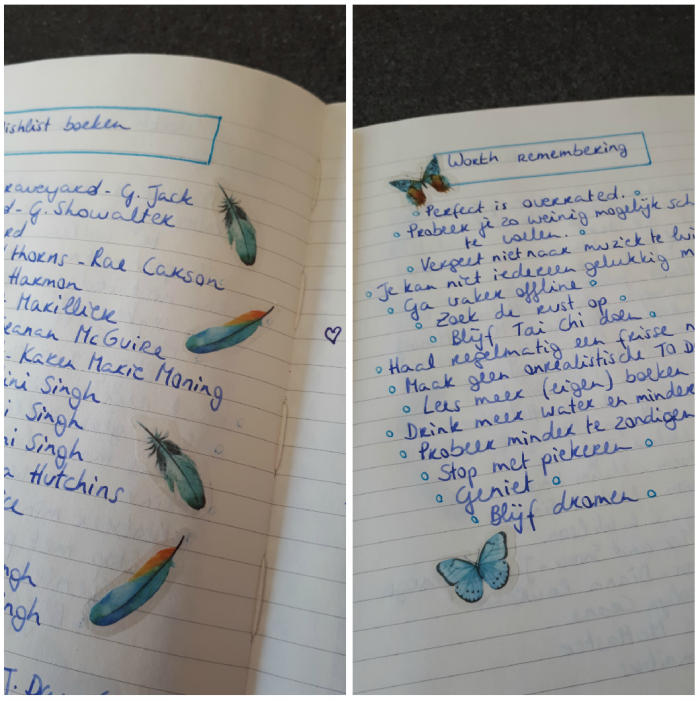 ishlist boeken
raveyard - G. Jack
d - G. Showalter
rd
thorns - Rae Carson
Harmon
Marillier
eanan McGuire
- Karen Marie Moning
ini Singh
i Singh
ni Singh
a Hutchins
ce
ngh
ngh
J. D
Worth remembering
Perfect is overrated.
Probeer je zo weinig mogelijk sch
te voelen.
Vergeet niet naar muziek te lui
Je kan niet iedereen gelukkig m
Ga vaker offline
Zoek de rust op
Blijf Tai Chi doen
Haal regelmatig een frisse n
Maak geen onrealistische TO D
Lees meer (eigen) boeken
Drink meer water en minder
Probeer minder te zondigen
Stop met piekeren
Geniet
Blijf dromen